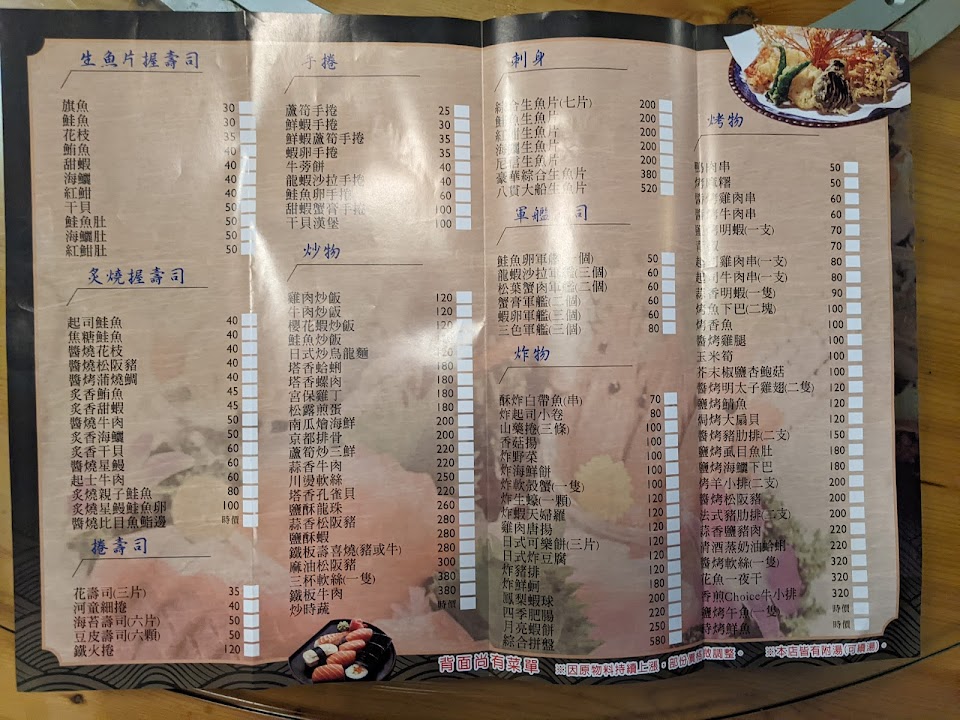 生魚片握壽司
旗魚 30
鮭魚 30
花枝 35
鮪魚 40
甜蝦 40
海鱺 40
紅魽 40
干貝 50
鮭魚肚 50
海鱺肚 50
紅魽肚 50
炙燒握壽司
起司鮭魚 40
焦糖鮭魚 40
醬燒花枝 40
醬燒松阪豬 40
醬烤蒲燒鯛 40
炙香鮪魚 45
炙香甜蝦 45
醬燒牛肉 50
炙香海鱺 50
炙香干貝 50
醬燒星鰻 60
起士牛肉 60
炙燒親子鮭魚 80
炙燒星鰻鮭魚卵 100
醬燒比目魚鮨邊 時價
捲壽司
花壽司(三片) 35
河童細捲 40
海苔壽司(六片) 50
豆皮壽司(六顆) 50
鐵火捲 120
手捲
蘆筍手捲 25
鮮蝦手捲 30
鮮蝦蘆筍手捲 35
蝦卵手捲 40
牛蒡餅 40
龍蝦沙拉手捲 40
鮭魚卵手捲 60
甜蝦蟹膏手捲 100
干貝漢堡 100
炒物
雞肉炒飯 120
牛肉炒飯 120
櫻花蝦炒飯 120
鮭魚炒飯
日式炒烏龍麵
塔香蛤蜊 180
塔香螺肉 180
宮保雞丁 180
松露煎蛋 180
南瓜燴海鮮 200
京都排骨 200
蘆筍炒三鮮 220
蒜香牛肉 220
川燙軟絲 250
塔香孔雀貝 220
鹽酥龍珠 260
蒜香松阪豬 280
鹽酥蝦 280
鐵板壽喜燒(豬或牛) 280
麻油松阪豬 300
三杯軟絲(一隻) 380
鐵板牛肉 380
炒時蔬 時價
刺身
綜合生魚片(七片) 200
鮭魚生魚片 200
紅魽生魚片 200
海鱺生魚片 200
生魚片 200
豪華綜合生魚片 380
八貫大船生魚片 520
軍艦 司
鮭魚卵軍艦 個) 50
龍蝦沙拉軍艦(三個) 60
松葉蟹肉軍艦(二個) 60
蟹膏軍艦(三個) 60
蝦卵軍艦(三個) 60
三色軍艦(三個) 80
炸物
酥炸白帶魚(串) 70
炸起司小卷 80
山藥捲(三條) 100
香菇揚 100
炸野菜 100
炸海鮮餅 100
炸軟殼蟹(一隻) 100
炸生蠔(一顆) 120
炸蝦天婦羅 120
雞肉唐揚 120
日式可樂餅(三片) 120
日式炸豆腐 120
炸豬排 120
炸鮮蚵 180
鳳梨蝦球 200
四季肥腸 220
月亮蝦餅 250
綜合拼盤 580
烤物
鴨肉串 50
烤 糬 50
雞肉串 60
烤牛肉串 60
烤明蝦(一支) 70
起司雞肉串(一支) 80
起司牛肉串(一支) 80
蒜香明蝦(一隻) 90
烤魚下巴(二塊) 100
烤香魚 100
醬烤雞腿 100
玉米筍 100
芥末椒鹽杏鮑菇 100
醬烤明太子雞翅(二隻) 120
鹽烤鯖魚 120
焗烤大扇貝 120
醬烤豬肋排(二支) 150
鹽烤虱目魚肚 180
鹽烤海鱺下巴 180
烤羊小排(二支) 200
醬烤松阪豬 200
法式豬肋排(二支) 200
蒜香鹽豬肉 220
清酒蒸奶油蛤蜊 220
醬烤軟絲(一隻) 320
花魚一夜干 320
香煎Choice牛小排 320
鹽烤午魚(一隻) 時價
時烤鮮魚 時價
背面尚有菜單
※因原物料持續上漲，部份 微調整。
※本店皆有附湯(可續湯)。